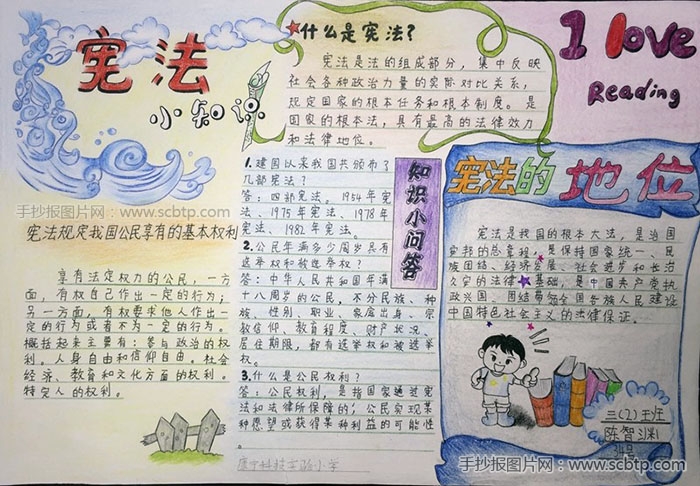 宪法
小知识
什么是宪法?
宪法是法的组成部分,集中反映
社会各种政治力量的实际对比关系,
规定国家的根本任务和根本制度。是
国家的根本法,具有最高的法律效力
和法律地位。
I love
Reading
手抄报图片网:www.scbtp.com
宪法规定我国公民享有的基本权利
享有法定权力的公民,一方
面,有权自己作出一定的行为;
另一方面,有权要求他人作出一
定的行为或者不为一定的行为。
概括起来主要有:参与政治的权
利。人身自由和信仰自由。社会
经济、教育和文化方面的权利。
特定人的权利。
知识小问答
1.建国以来我国共颁布了
几部宪法?
答:四部宪法。1954年宪
法、1975年宪法、1978年
宪法、1982年宪法。
2.公民年满多少周岁具有
选举权和被选举权?
答:中华人民共和国年满
十八周岁的公民,不分民族、种
族、性别、职业、家庭出身、宗
教信仰、教育程度、财产状况、
居住期限,都有选举权和被选举
权。
3.什么是公民权利?
答:公民权利,是指国家通过宪
法和法律所保障的;公民实现某
种愿望或获得某种利益的可能性
。
宪法的地位
宪法是我国的根本大法,是治国
安邦的总章程,是保持国家统一、民
族团结、经济发展、社会进步和长治
久安的法律基础,是中国共产党执
政兴国、团结带领全国各族人民建设
中国特色社会主义的法律保证。
三(2)班
陈智
科技实验小学
手抄报图片网:www.scbtp.com